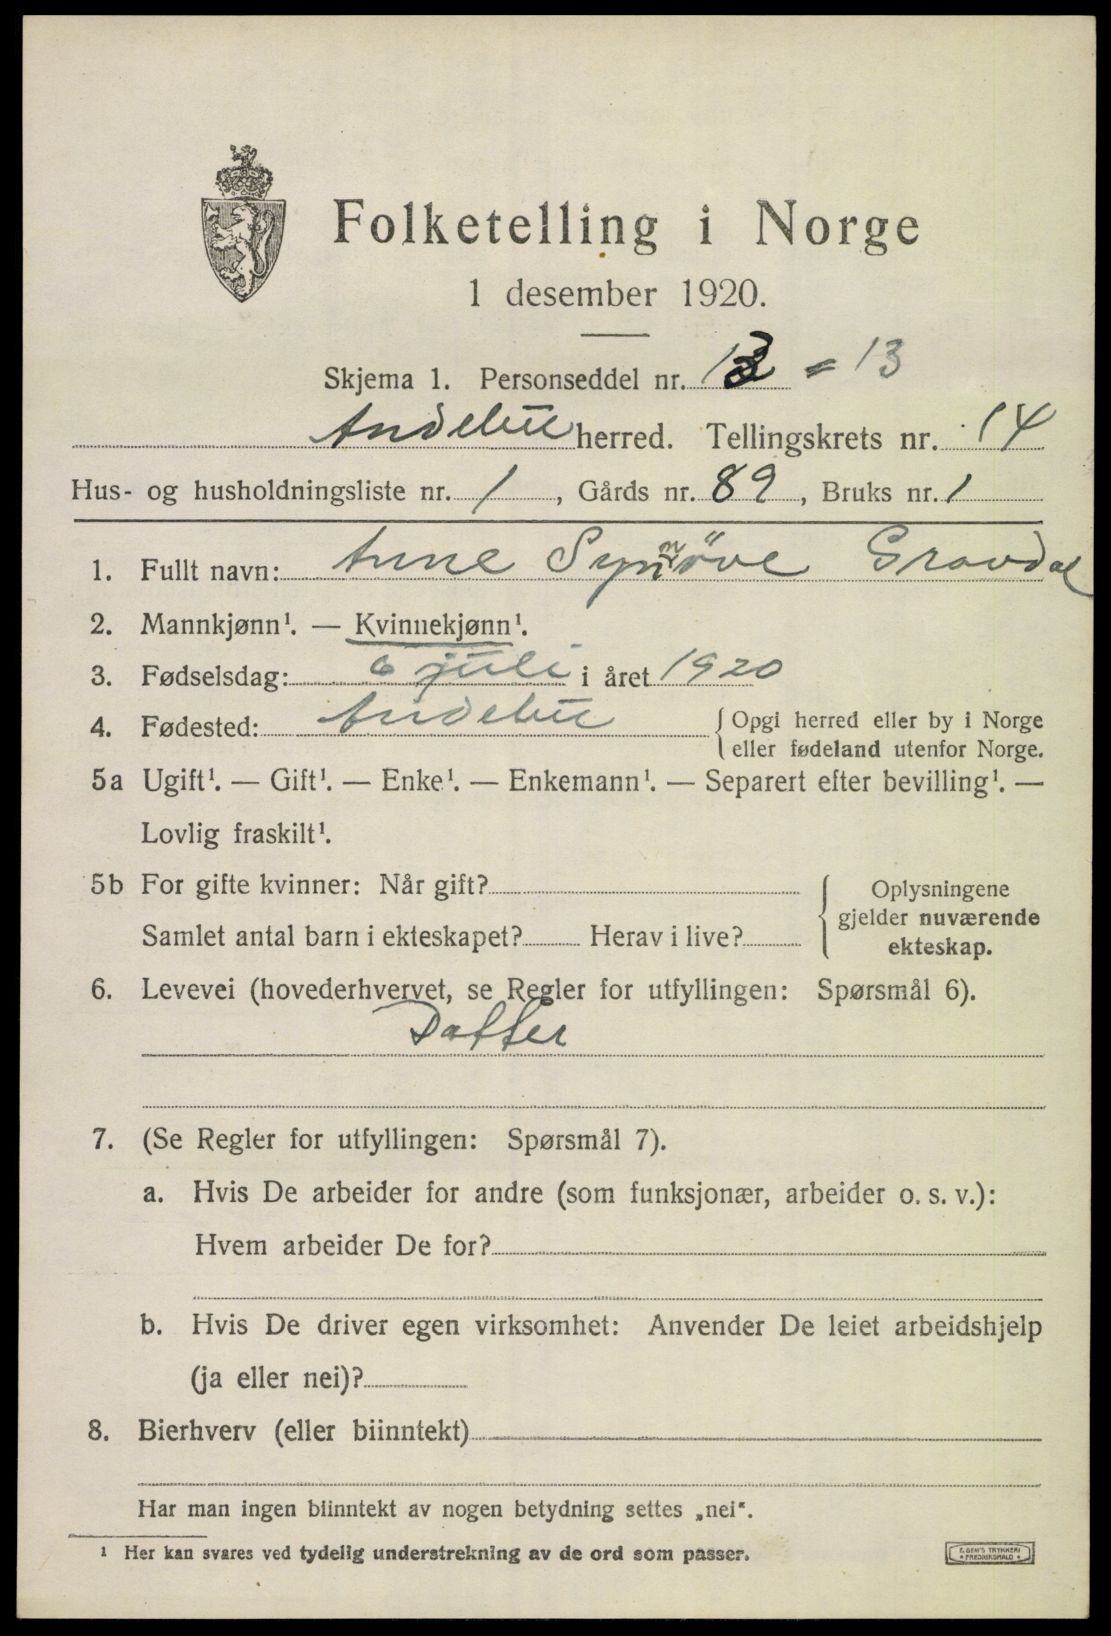 Folketelling i Norge
1 desember 1920.
Skjema 1. Personseddel nr. 13 = 13
Andebu herred. Tellingskrets nr. 14
Hus- og husholdningsliste nr. 1, Gårds nr. 89, Bruks nr. 1
1. Fullt navn: Anne Synnöve Gravdal
2. Mannkjønn¹. — Kvinnekjønn¹.
3. Fødselsdag: 6 juli i året 1920
4. Fødested: Andebu { Opgi herred eller by i Norge
eller fødeland utenfor Norge.
5a Ugift¹. — Gift¹. — Enke¹. — Enkemann¹. — Separert efter bevilling¹. —
Lovlig fraskilt¹.
5b For gifte kvinner: Når gift?
Samlet antal barn i ekteskapet? Herav i live?
{ Oplysningene
gjelder nuværende
ekteskap.
6. Levevei (hovederhvervet, se Regler for utfyllingen: Spørsmål 6).
Datter
7. (Se Regler for utfyllingen: Spørsmål 7).
a. Hvis De arbeider for andre (som funksjonær, arbeider o. s. v.):
Hvem arbeider De for?
b. Hvis De driver egen virksomhet: Anvender De leiet arbeidshjelp
(ja eller nei)?
8. Bierhverv (eller biinntekt)
Har man ingen biinntekt av nogen betydning settes „nei".
¹ Her kan svares ved tydelig understrekning av de ord som passer.
E. SEM'S TRYKKERI
FREDRIKSHALD